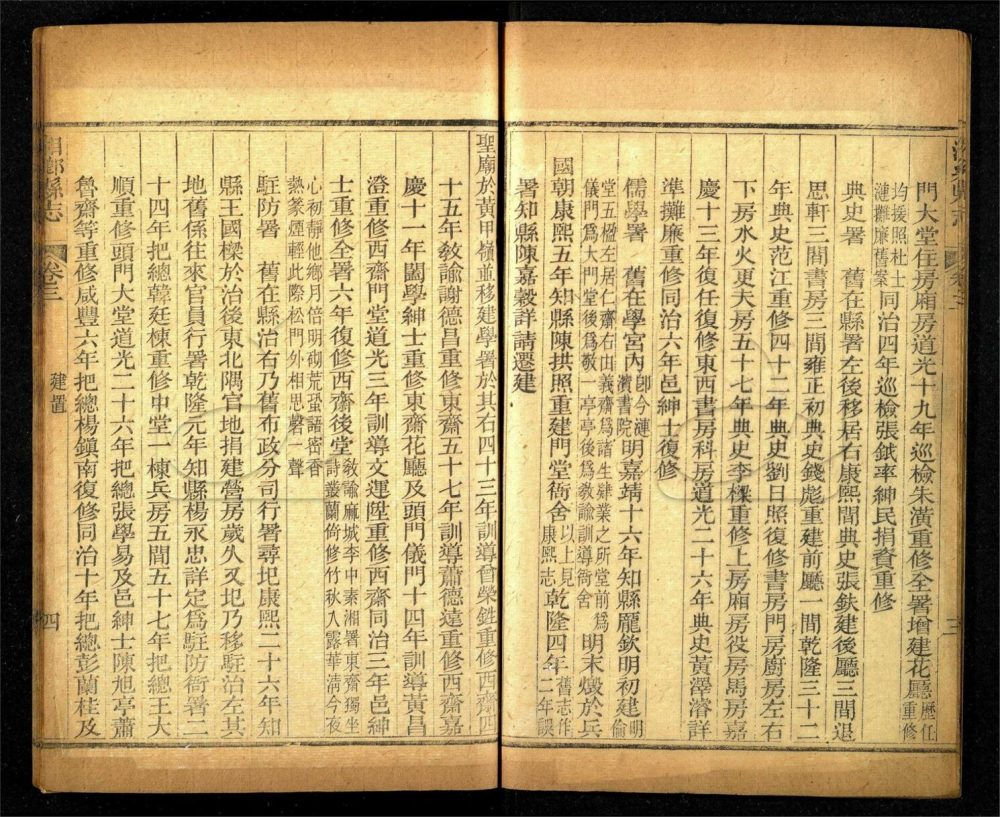 門大堂住房廂房道光十九年巡檢朱潢重修全署增建花廳歷任重修
均援照杜士漣攤廉舊案同治四年巡檢張鉽率紳民捐資重修
典史署　舊在縣署左後移居右康熙間典史張鈇建後廳三間退
思軒三間書房三間雍正初典史錢彪重建前廳一間乾隆三十二
年典史范江重修四十二年典史劉日照復修書房門房廚房左右
下房水火更夫房五十七年典史李樑重修上房廂房役房馬房嘉
慶十三年復任復修東西書房科房道光二十六年典史黃澤濬詳
準攤廉重修同治六年邑紳士復修
儒學署　舊在學宮內卽今漣濱書院明嘉靖十六年知縣龐欽明初建明倫
堂五楹左居仁齋右由義齋爲諸生肄業之所堂前爲儀門爲大門堂後爲敬一亭亭後爲敎諭訓導衙舍明末燬於兵
國朝康熙五年知縣陳拱照重建門堂衙舍以上見康熙志乾隆四年舊志作二年誤
署知縣陳嘉穀詳請遷建
聖廟於黃甲嶺並移建學署於其右四十三年訓導曾榮甡重修西齋四
十五年敎諭謝德昌重修東齋五十七年訓導蕭德遠重修西齋嘉
慶十一年闔學紳士重修東齋花廳及頭門儀門十四年訓導黃昌
澄重修西齋門堂道光三年訓導文運陞重修西齋同治三年邑紳
士重修全署六年復修西齋後堂敎諭麻城李中素湘署東齋獨坐詩叢蘭倚修竹秋入露華淸今夜
心初靜他鄉月倍明砌荒蛩語密香熱篆煙輕此際松門外相思磬一聲
駐防署　舊在縣治右乃舊布政分司行署尋圯康熙二十六年知
縣王國樑於治後東北隅官地捐建營房歲久又圯乃移駐治左其
地舊係往來官員行署乾隆元年知縣楊永忠詳定爲駐防衙署二
十四年把總韓廷棟重修中堂一棟兵房五間五十七年把總王大
順重修頭門大堂道光二十六年把總張學易及邑紳士陳旭亭蕭
魯齋等重修咸豐六年把總楊鎮南復修同治十年把總彭蘭桂及
湘鄉縣志
卷三
建置
四